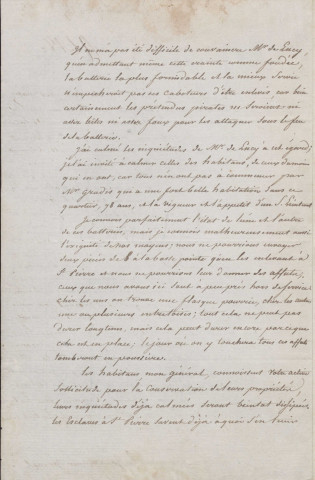 Il ne m'a pas été difficile de convaincre Mr. de Lacy,
qu'en admettant même cette crainte comme fondée,
la batterie la plus formidable et la mieux servie
n'empêcherait pas ces caboteurs d'être enlevés, car bien
certainement les prétendus pirates ne seraient ni
assez bêtes ni assez fous pour les attaquer sous le feu
de la batterie.
J'ai calmé les inquiétudes de Mr. de Lacy à cet égard;
je l'ai invité à calmer celles des habitans, de ceux du moins
qui en ont, car tous n'en ont pas à commencer par
Mr. qui a une fort belle habitation dans ce
quartier, 98 ans, et la vigueur et l'appétit d'un S. Lieutenant
Je connais parfaitement l'état de l'une et l'autre
de ces batteries, mais je connais malheureusement aussi
l'exiguité de nos moyens; nous ne pourrions envoyer
deux pièces de 8 à la basse pointe qu'en les enlevant à
St. Pierre et nous ne pourrions leur donner des affûts;
ceux que nous avons ici sont à peu près hors de service
chez les uns on trouve une flasque pourrie, chez les autres
une ou plusieurs entretoises; tout cela ne peut pas
durer longtems, mais cela peut durer encore parceque
cela est en place; le jour où on y touchera tous ces affûts
tomberont en poussière.
Les habitans mon général, connaissent votre active
sollicitude pour la conservation de leurs propriétés,
leurs inquiétudes déja calmées seront bientôt dissipées,
les Esclaves à St. Pierre savent déja à quoi s'en tenir